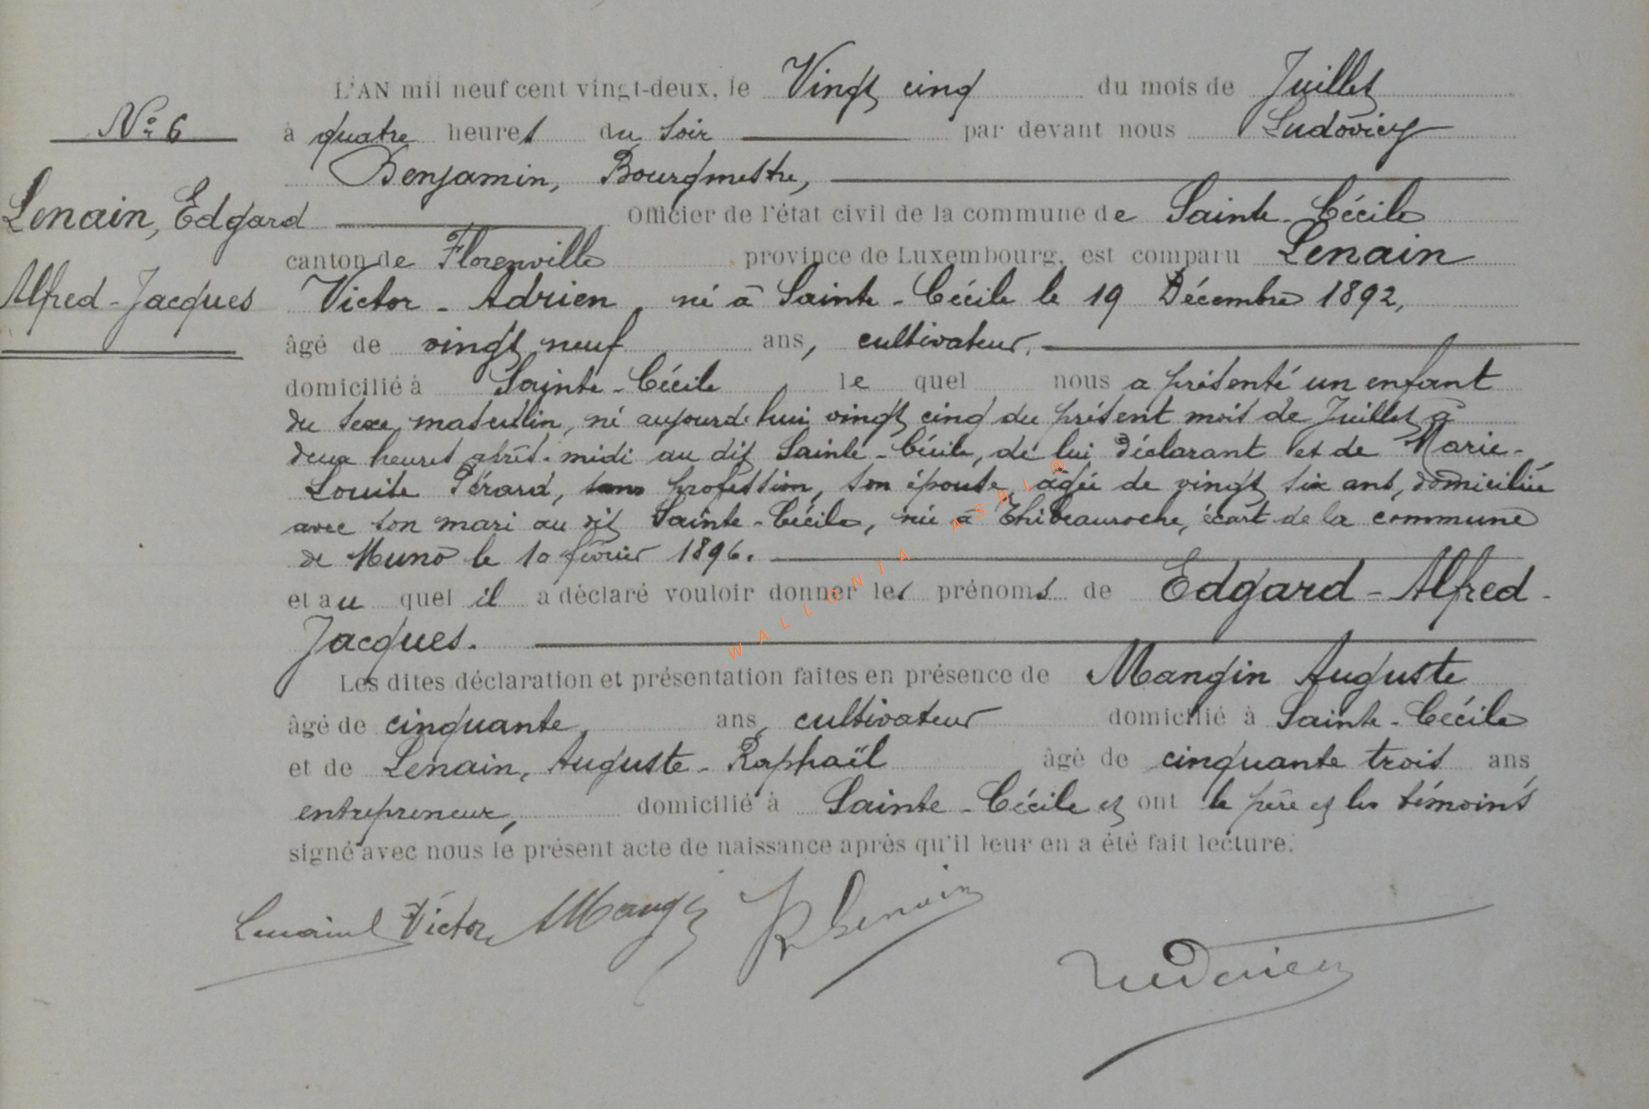 N° 6
Lenain, Edgard
Alfred-Jacques
L'AN mil neuf cent vingt-deux, le Vingt cinq du mois de Juillet
à quatre heures du soir par devant nous Ludovicy
Benjamin, Bourgmestre,
Officier de l'état civil de la commune de Sainte-Cécile
canton de Florenville province de Luxembourg, est comparu Lenain
Victor-Adrien, né à Sainte-Cécile le 19 Décembre 1892,
âgé de vingt neuf ans, cultivateur,
domicilié à Sainte-Cécile le quel nous a présenté un enfant
du sexe masculin, né aujourd'hui vingt cinq du présent mois de Juillet à
deux heures après-midi au dit Sainte-Cécile, de lui déclarant et de Marie-
Louise Pérard, sans profession, son épouse, âgée de vingt six ans, domiciliée
avec son mari au dit Sainte-Cécile, née à Thibeauroche, écart de la commune
de Muno le 10 février 1896.
et au quel il a déclaré vouloir donner les prénoms de Edgard-Alfred-
Jacques.
Les dites déclaration et présentation faites en présence de Mangin Auguste
âgé de cinquante ans, cultivateur domicilié à Sainte-Cécile
et de Lenain, Auguste-Raphaïl âgé de cinquante trois ans
entrepreneur, domicilié à Sainte-Cécile et ont le père et les témoins
signé avec nous le présent acte de naissance après qu'il leur en a été fait lecture.
Lenain Victor AMangin R Lenain
Ludovicy
WALLONIA ASBL